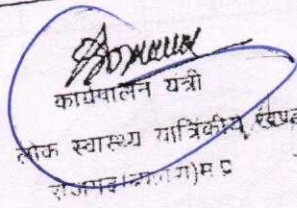 कार्यपालन यंत्री
लोक स्वास्थ्य यांत्रिकीय खण्ड
राजगढ़ म प्र